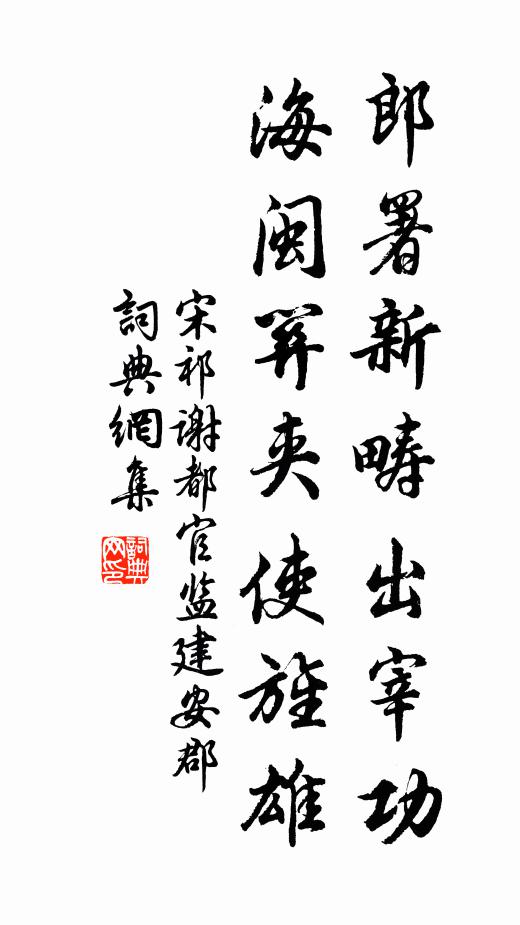 郎署新疇出宰功
海閩笄夾使旌雄
宋祁谢都官监建安郡
詞典網集
詞典網印